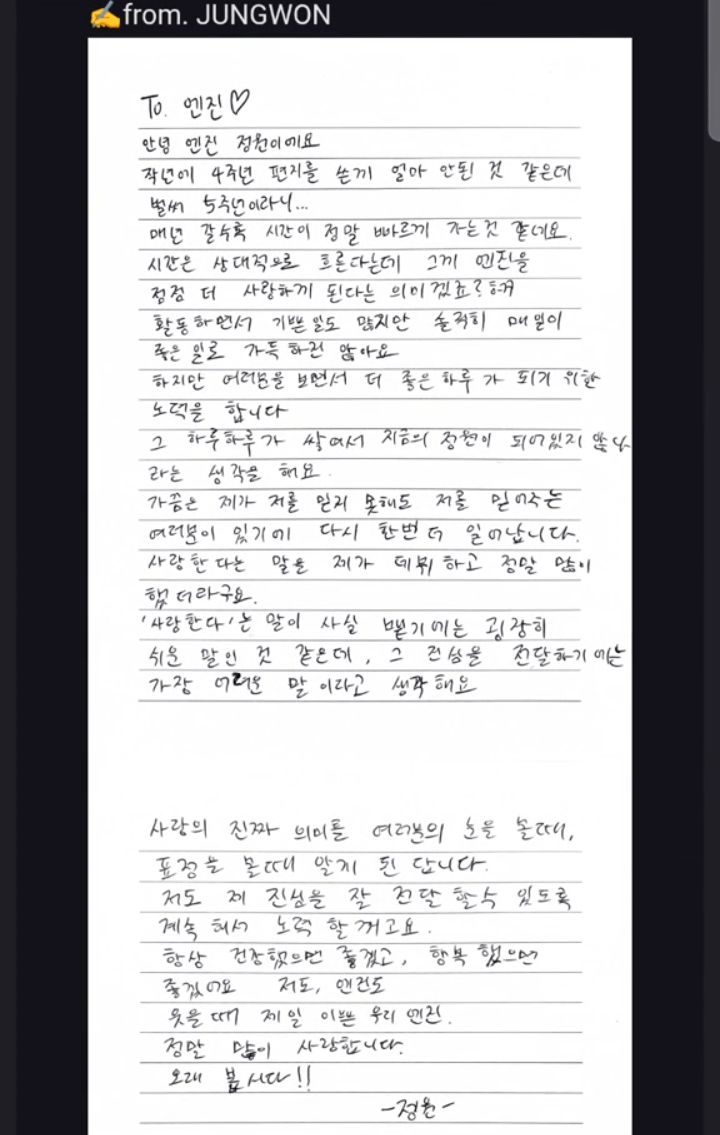 ✍️from. JUNGWON
To. 엔진♡
안녕 엔진 정원이에요
작년에 4주년 편지를 쓴게 얼마 안된 것 같은데
벌써 5주년이라니...
매년 갈수록 시간이 정말 빠르게 가는것 같네요.
시간은 상대적으로 흐른다는데 그게 엔진을
점점 더 사랑하게 된다는 의미겠죠? ㅎㅎ
활동하면서 기쁜일도 많지만 솔직히 매일이
좋은 일로 가득하진 않아요
하지만 여러분을 보면서 더 좋은 하루가 되기 위한
노력을 합니다
그 하루하루가 쌓여서 지금의 정원이 되어있지 않나
라는 생각을 해요.
가끔은 제가 저를 믿지 못해도 저를 믿어주는
여러분이 있기에 다시 한번 더 일어납니다.
사랑한다는 말을 제가 데뷔하고 정말 많이
했더라구요.
'사랑한다'는 말이 사실 뱉기에는 굉장히
쉬운 말인 것 같은데, 그 진심을 전달하기에는
가장 어려운 말이라고 생각해요
사랑의 진짜 의미를 여러분의 눈을 볼때,
표정을 볼때 알게 된답니다.
저도 제 진심을 잘 전달 할수 있도록
계속해서 노력 할게고요.
항상 건강했으면 좋겠고, 행복했으면
좋겠어요 저도, 엔진도
웃을때 제일 이쁜 우리 엔진.
정말 많이 사랑합니다.
오래 봅시다!!
-정원-